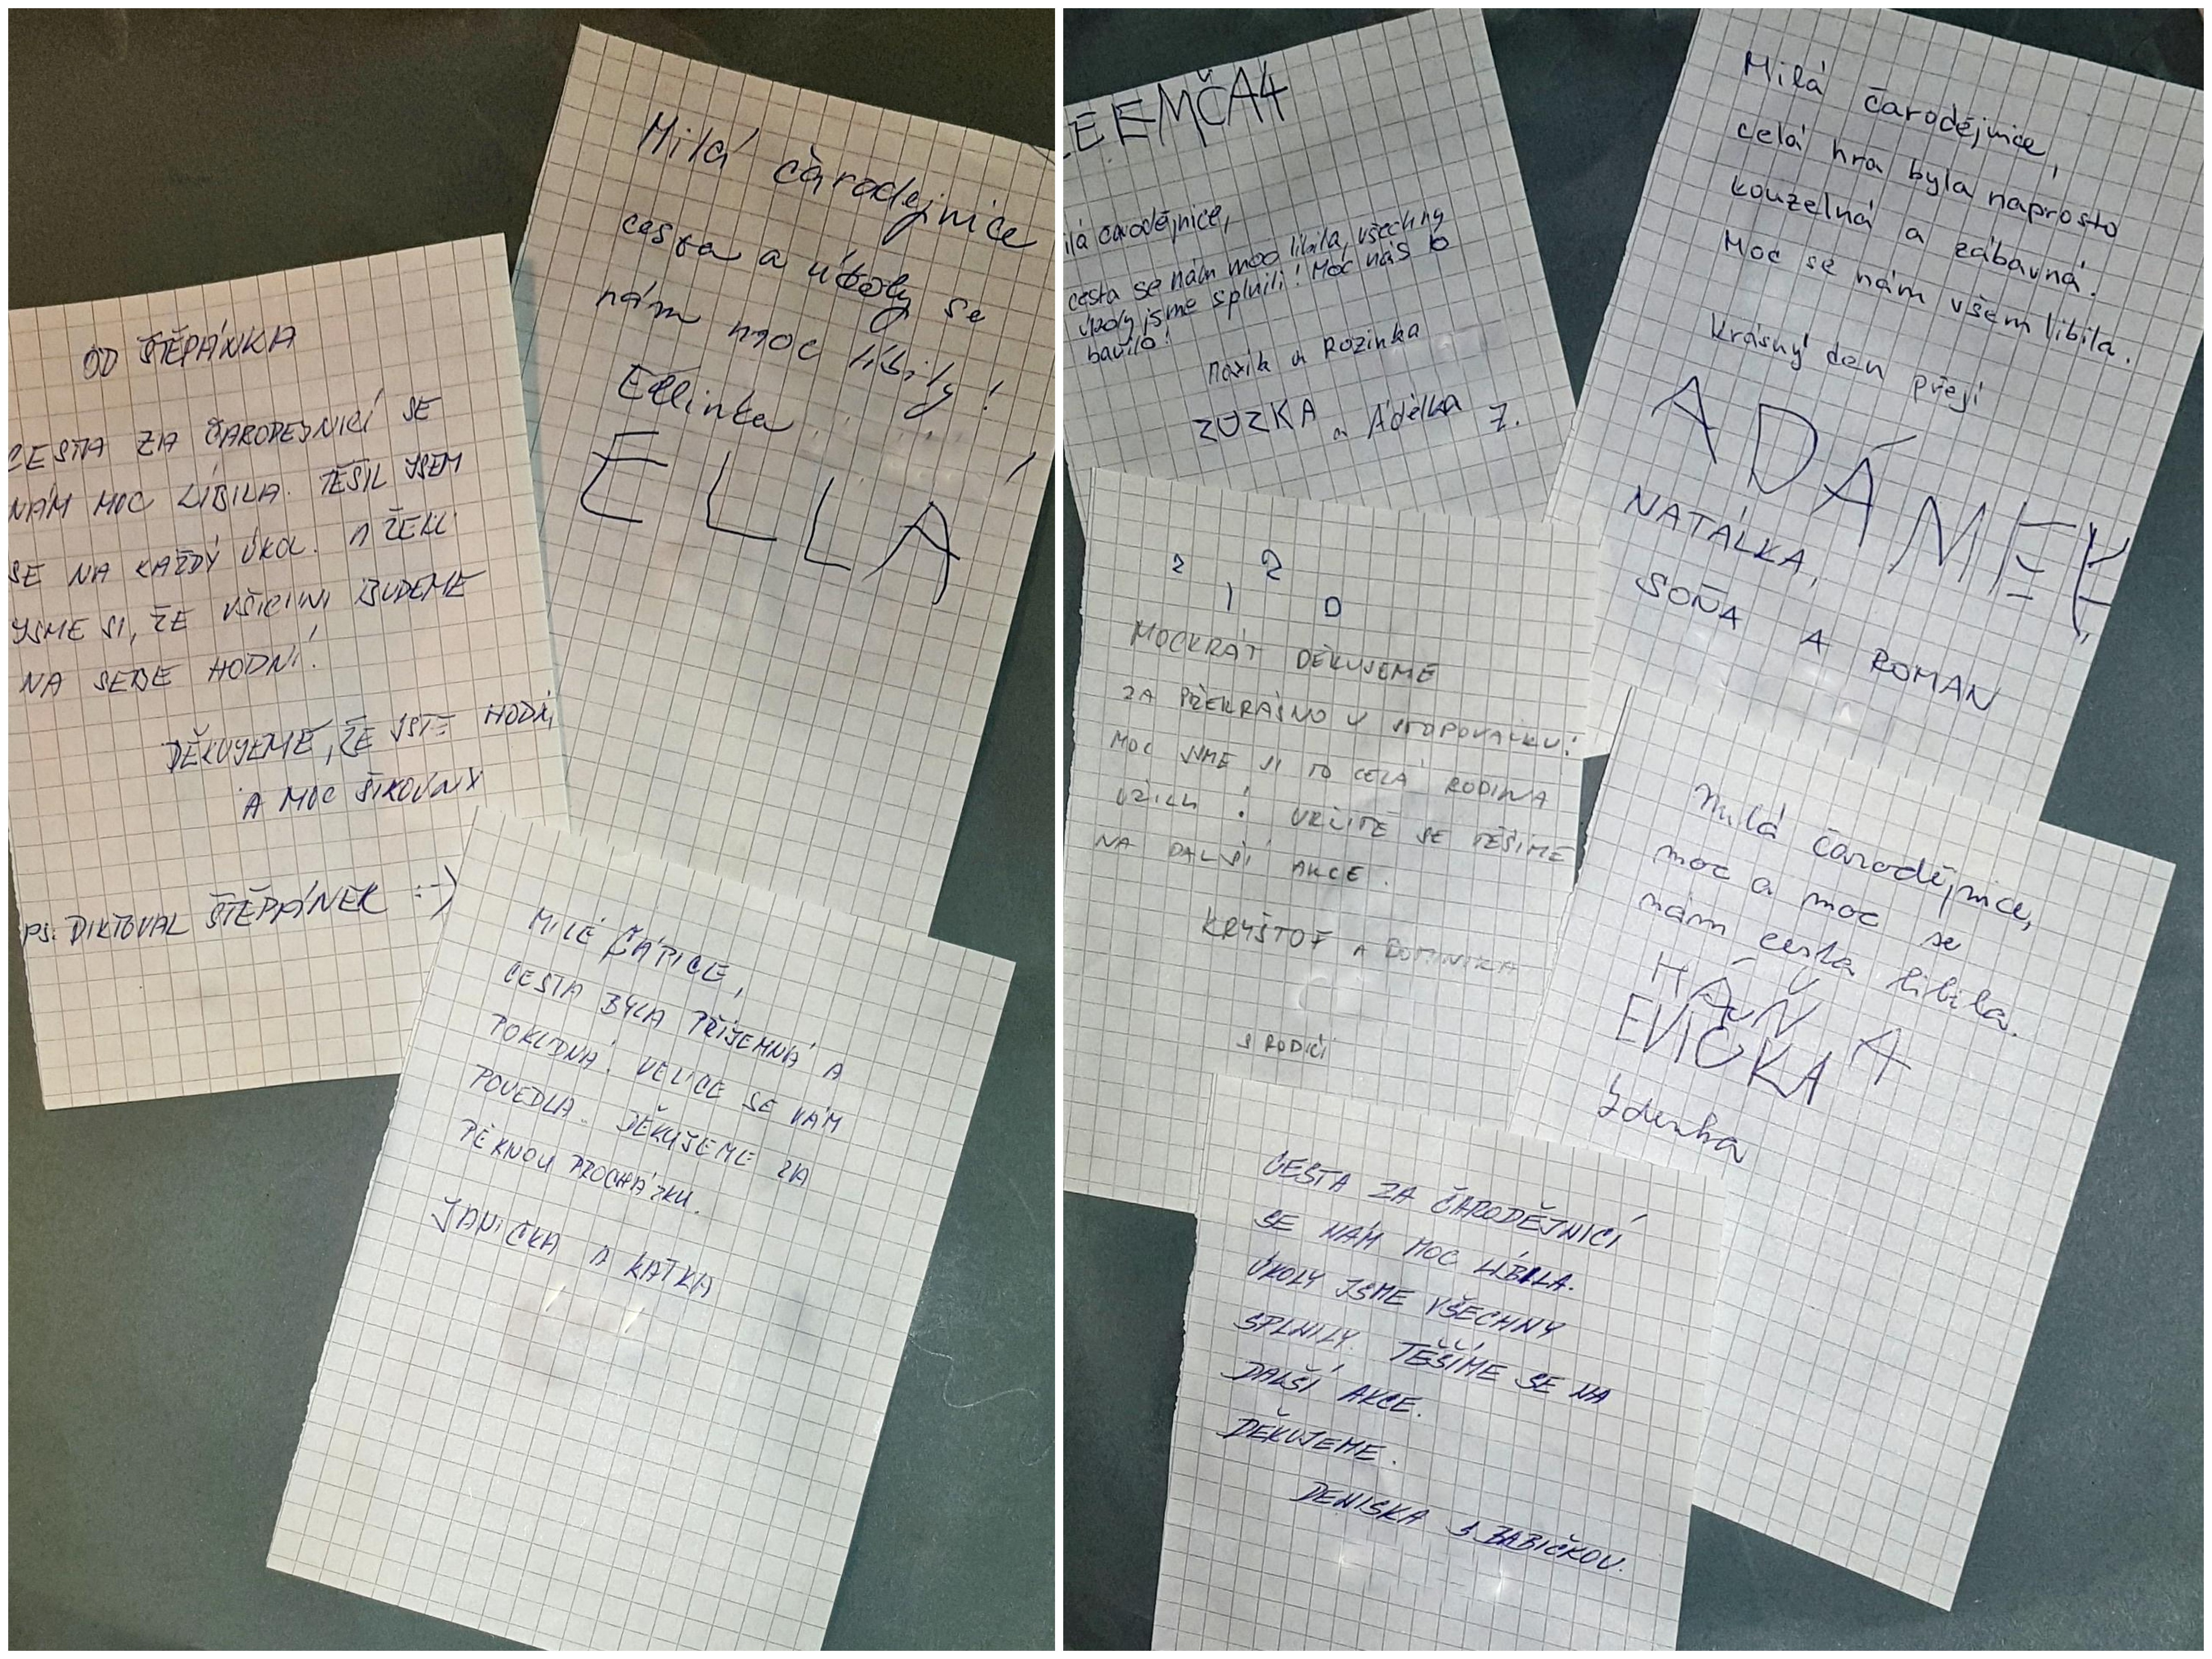 OD ŠTĚPÁNKA
CESTA ZA ČARODEJNICÍ SE
NÁM MOC LÍBILA. TĚŠIL JSEM
SE NA KAŽDÝ ÚKOL. A ŘEKLI
JSME SI, ŽE VŠICHNI BUDEME
NA SEBE HODNÍ!
DĚKUJEME, ŽE JSTE HODNÍ
A MOC ŠIKOVNÝ
PS. DIKTOVAL ŠTĚPÁNEK :-)
Milá čarodejnice
cesta a úkoly se
nám moc líbily!
Ellinka
ELLA
MILÉ ČÁPICE,
CESTA BYLA PŘÍJEMNÁ A
POKLIDNÁ. VELICE SE VÁM
POVEDLA. DĚKUJEME ZA
PĚKNOU PROCHÁZKU.
JANIČKA A KAŤKA
ilá čarodějnice,
cesta se nám moc líbila, všechny
úkoly jsme splnili! Moc nás to
bavilo!
a Rozinka
ZUZKA a Adélka Z.
Milá čarodějnice,
celá hra byla naprosto
kouzelná a zábavná.
Moc se nám všem líbila.
Krásný den přejí
ADÁMEK,
NATÁLKA,
SOŇA A ROMAN
2 2
1 D
MOCKRÁT DĚKUJEME
ZA PŘEKRÁSNOU STOPOVAČKU!
MOC JSME SI TO CELÁ RODINA
UŽILI! URČITĚ SE TĚŠÍME
NA DALŠÍ AKCE.
KRYŠTOF A DOMINIKA
S RODIČI
Milá čarodějnice,
moc a moc se
nám cesta líbila.
HÁŇA
EVIČKA
Zdenka
CESTA ZA ČARODĚJNICÍ
SE NÁM MOC LÍBILA.
ÚKOLY JSME VŠECHNY
SPLNILY. TĚŠÍME SE NA
DALŠÍ AKCE.
DĚKUJEME.
DENISKA S BABIČKOU.